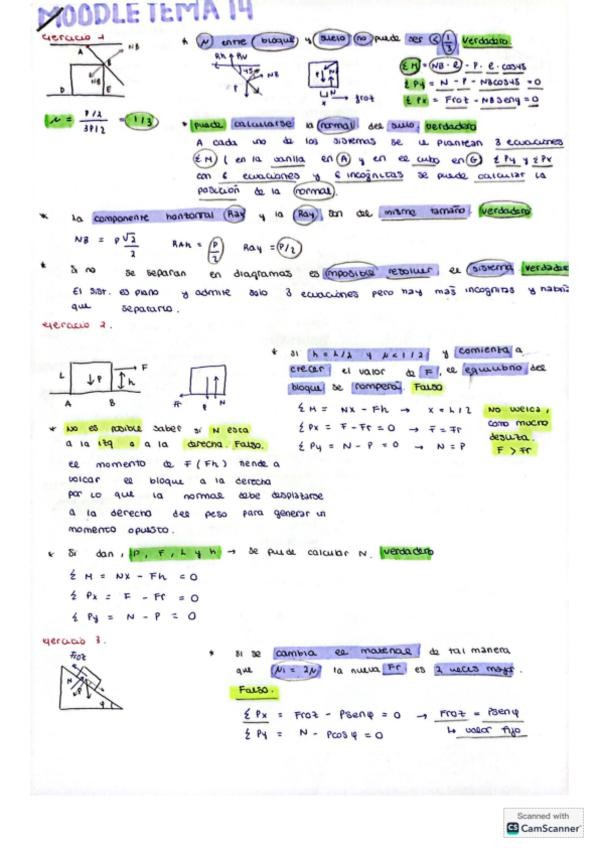 MOODLE TEMA 14
ejercicio 1
* μ entre bloque y suelo no puede ser < 1/3 verdadero
A B NB NB D E
RAh RAv 45º NB P
P N froz
Σ M = NB · l - P · l · cos45
Σ Py = N - P - NBcos45 = 0
Σ Px = Froz - NBseny = 0
μ = P/2 / 3P/2 = 1/3
* puede calcularse la normal del suelo, verdadero
A cada uno de los sistemas se le plantean 3 ecuaciones
Σ M (en la varilla en A y en el cubo en G) Σ Py y Σ Px
con 6 ecuaciones y 6 incógnitas se puede calcular la
posición de la normal.
* La componente horizontal Rax y la Ray, son del mismo tamaño. verdadero
NB = P√2/2 RAh = P/2 Ray = P/2
* Si no se separan en diagramas es imposible resolver, el sistema verdade
El sist. es plano y admite solo 3 ecuaciones pero hay mas incognitas y habria
que separarlo.
ejercicio 2.
L P F h A B
Fr P N
* Si h = L/2 y μ < 1/2 y comienza a
crecer el valor de F, el equilibrio del
bloque se romperá. Falso
Σ M = NX - Fh → x = L/2
Σ Px = F - Fr = 0 → F = Fr
Σ Py = N - P = 0 → N = P
No vuelca,
como mucho
desliza.
F > Fr
* No es posible saber si N esta
a la izq o a la derecha. Falso.
el momento de F (Fh) tiende a
volcar el bloque a la derecha
por lo que la normal debe desplazarse
a la derecha del peso para generar un
momento opuesto.
* Si dan, P, F, L y h → se puede calcular N. verdadero
Σ M = NX - Fh = 0
Σ Px = F - Fr = 0
Σ Py = N - P = 0
ejercicio 3.
Froz N P φ
* Si se cambia el material de tal manera
que μ1 = 2μ la nueva Fr es 2 veces mayor.
Falso.
Σ Px = Froz - Psenφ = 0 → Froz = Psenφ
Σ Py = N - Pcosφ = 0 ↳ valor fijo
Scanned with
CS CamScanner